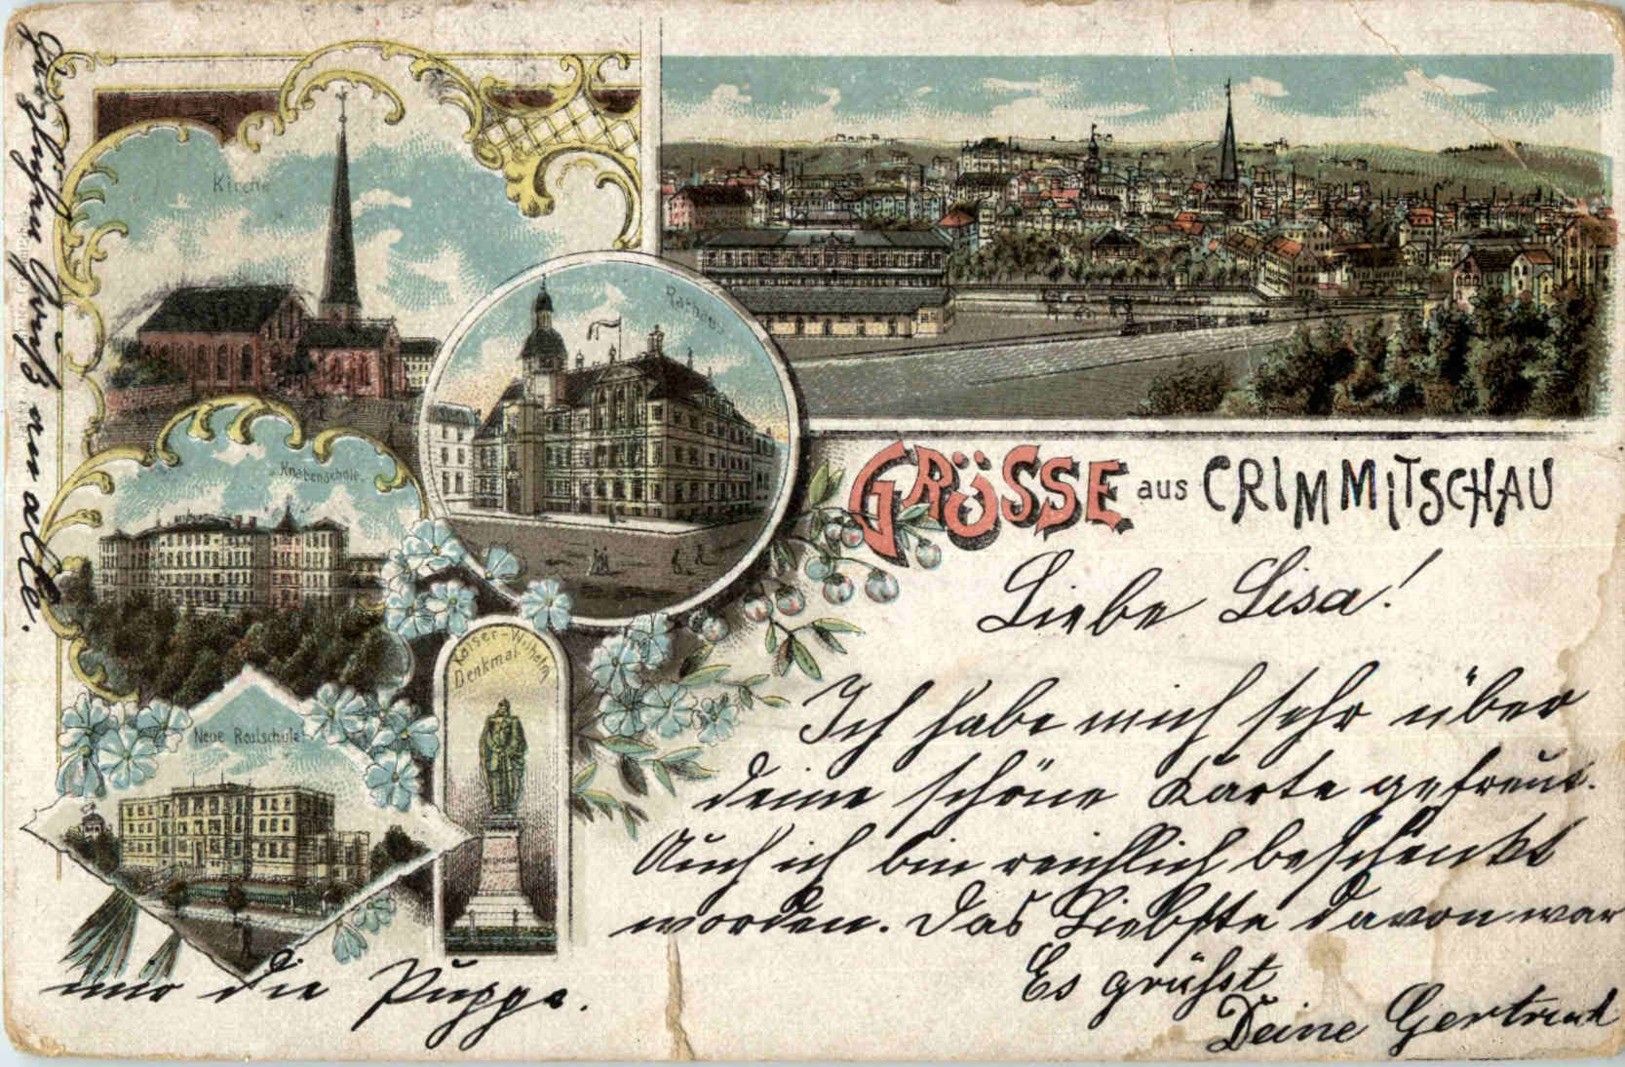 Kirche
Rathaus
Knabenschule.
Kaiser-Wilhelm
Denkmal
WILHELM
Neue Realschule
GRÜSSE aus CRIMMITSCHAU
Liebe Lisa!
Ich habe mich sehr über
deine schöne Karte gefreut.
Auch ich bin reichlich beschenkt
worden. Das Liebste davon war
mir die Puppe.
Es grüßt
Deine Gertrud
Herzlichen Gruß an alle.